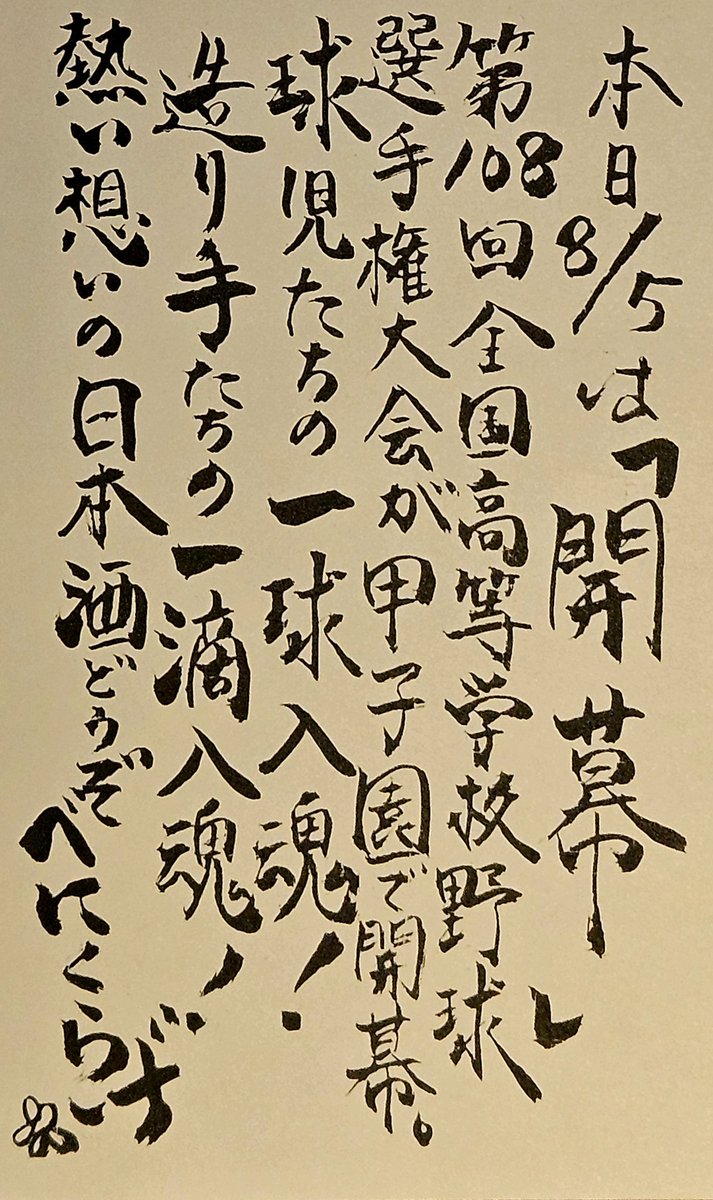 本日8/5は「開幕」
第108回全国高等学校野球
選手権大会が甲子園で開幕。
球児たちの一球入魂!
造り手たちの一滴入魂!
熱い想いの日本酒どうぞ
べにくらげ